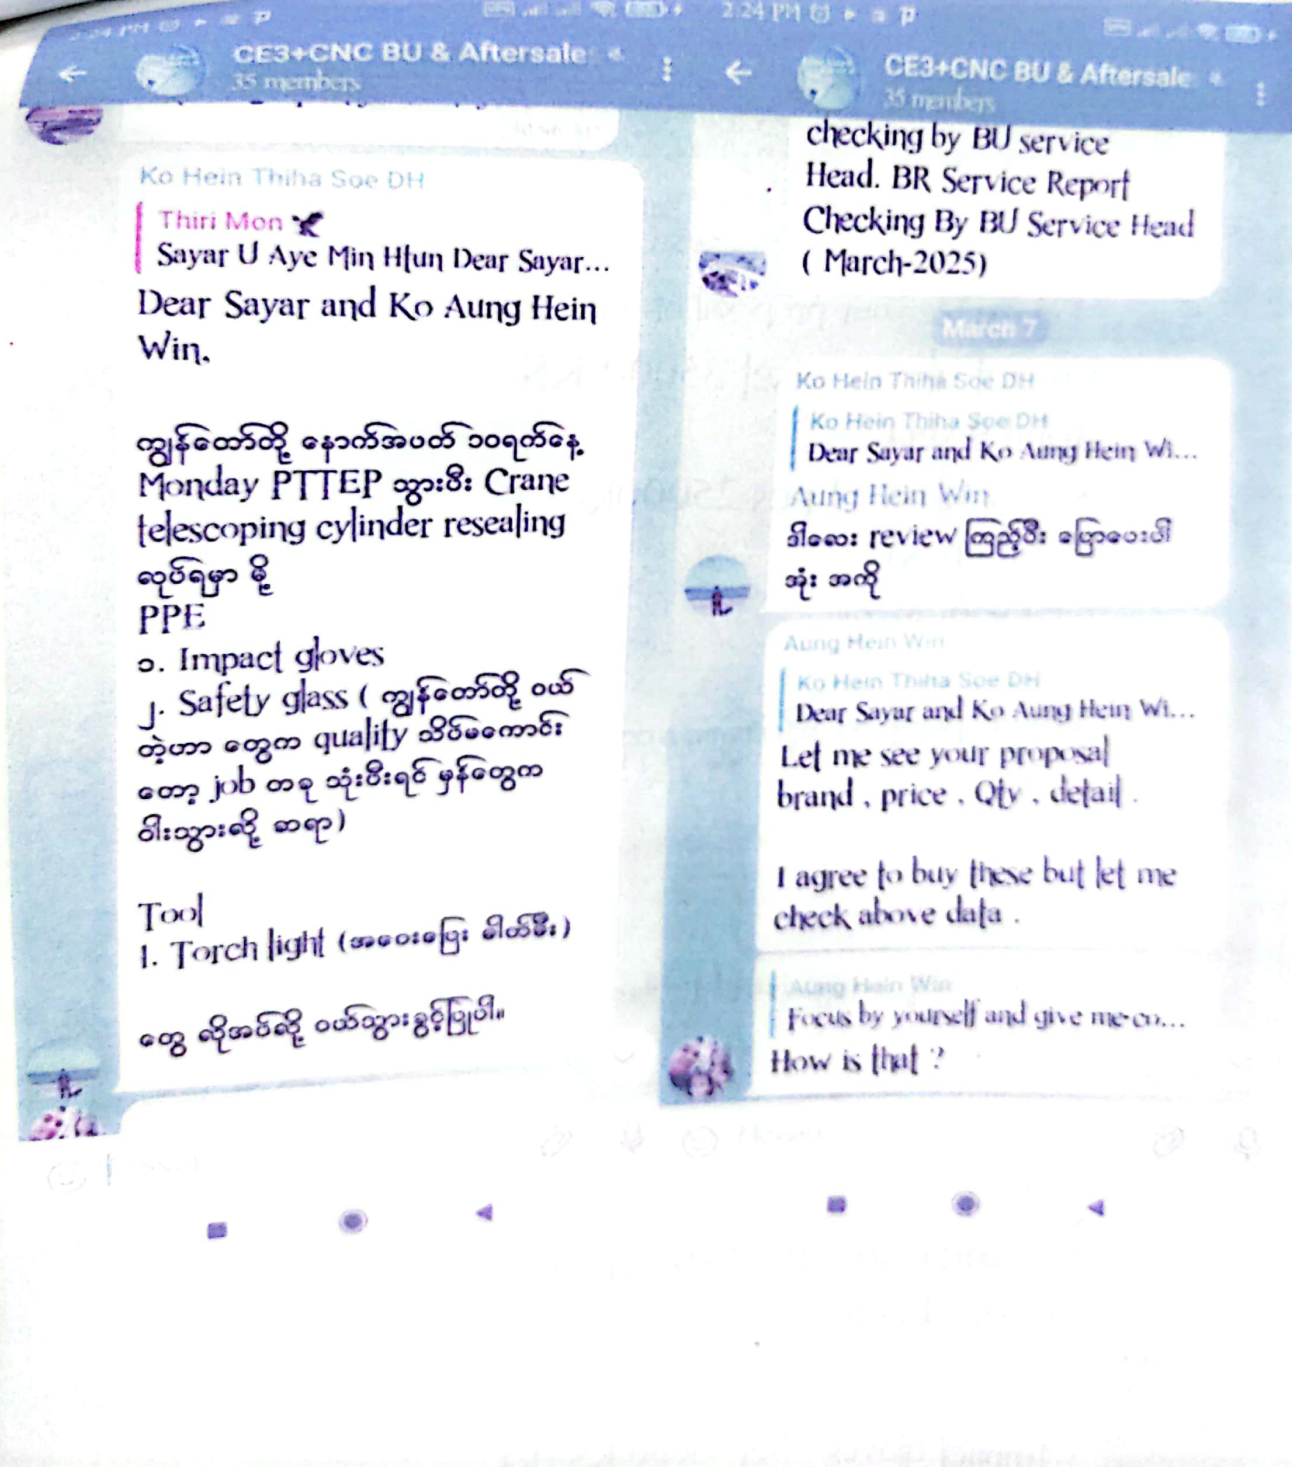 CE3+CNC BU & Aftersale
35 members
Ko Hein Thiha Soe DH
Thiri Mon
Sayar U Aye Min Htun Dear Sayar...
Dear Sayar and Ko Aung Hein
Win.
ကျွန်တော်တို့ နောက်အပတ် ၁၀ရက်နေ့
Monday PTTEP သွားပီး Crane
telescoping cylinder resealing
လုပ်ရမှာ မို့
PPE
၁. Impact gloves
၂. Safety glass ( ကျွန်တော်တို့ ဝယ်
တဲ့ဟာ တွေက quality သိပ်မကောင်း
တော့ job တခု သုံးပီးရင် မှန်တွေက
ဝါးသွားလို့ ဆရာ)
Tool
1. Torch light (အဝေးပြေး ဓါတ်မီး)
တွေ လိုအပ်လို့ ဝယ်သွားခွင့်ပြုပါ။
2:24 PM
CE3+CNC BU & Aftersale
35 members
checking by BU service
Head. BR Service Report
Checking By BU Service Head
( March-2025)
March 7
Ko Hein Thiha Soe DH
Ko Hein Thiha Soe DH
Dear Sayar and Ko Aung Hein Wi...
Aung Hein Win
ဒါလေး review ကြည့်ပီး ပြောပေးပါ
အုံး အကို
Aung Hein Win
Ko Hein Thiha Soe DH
Dear Sayar and Ko Aung Hein Wi...
Let me see your proposal
brand , price , Qty , detail .
I agree to buy these but let me
check above data .
Aung Hein Win
Focus by yourself and give me co...
How is that ?